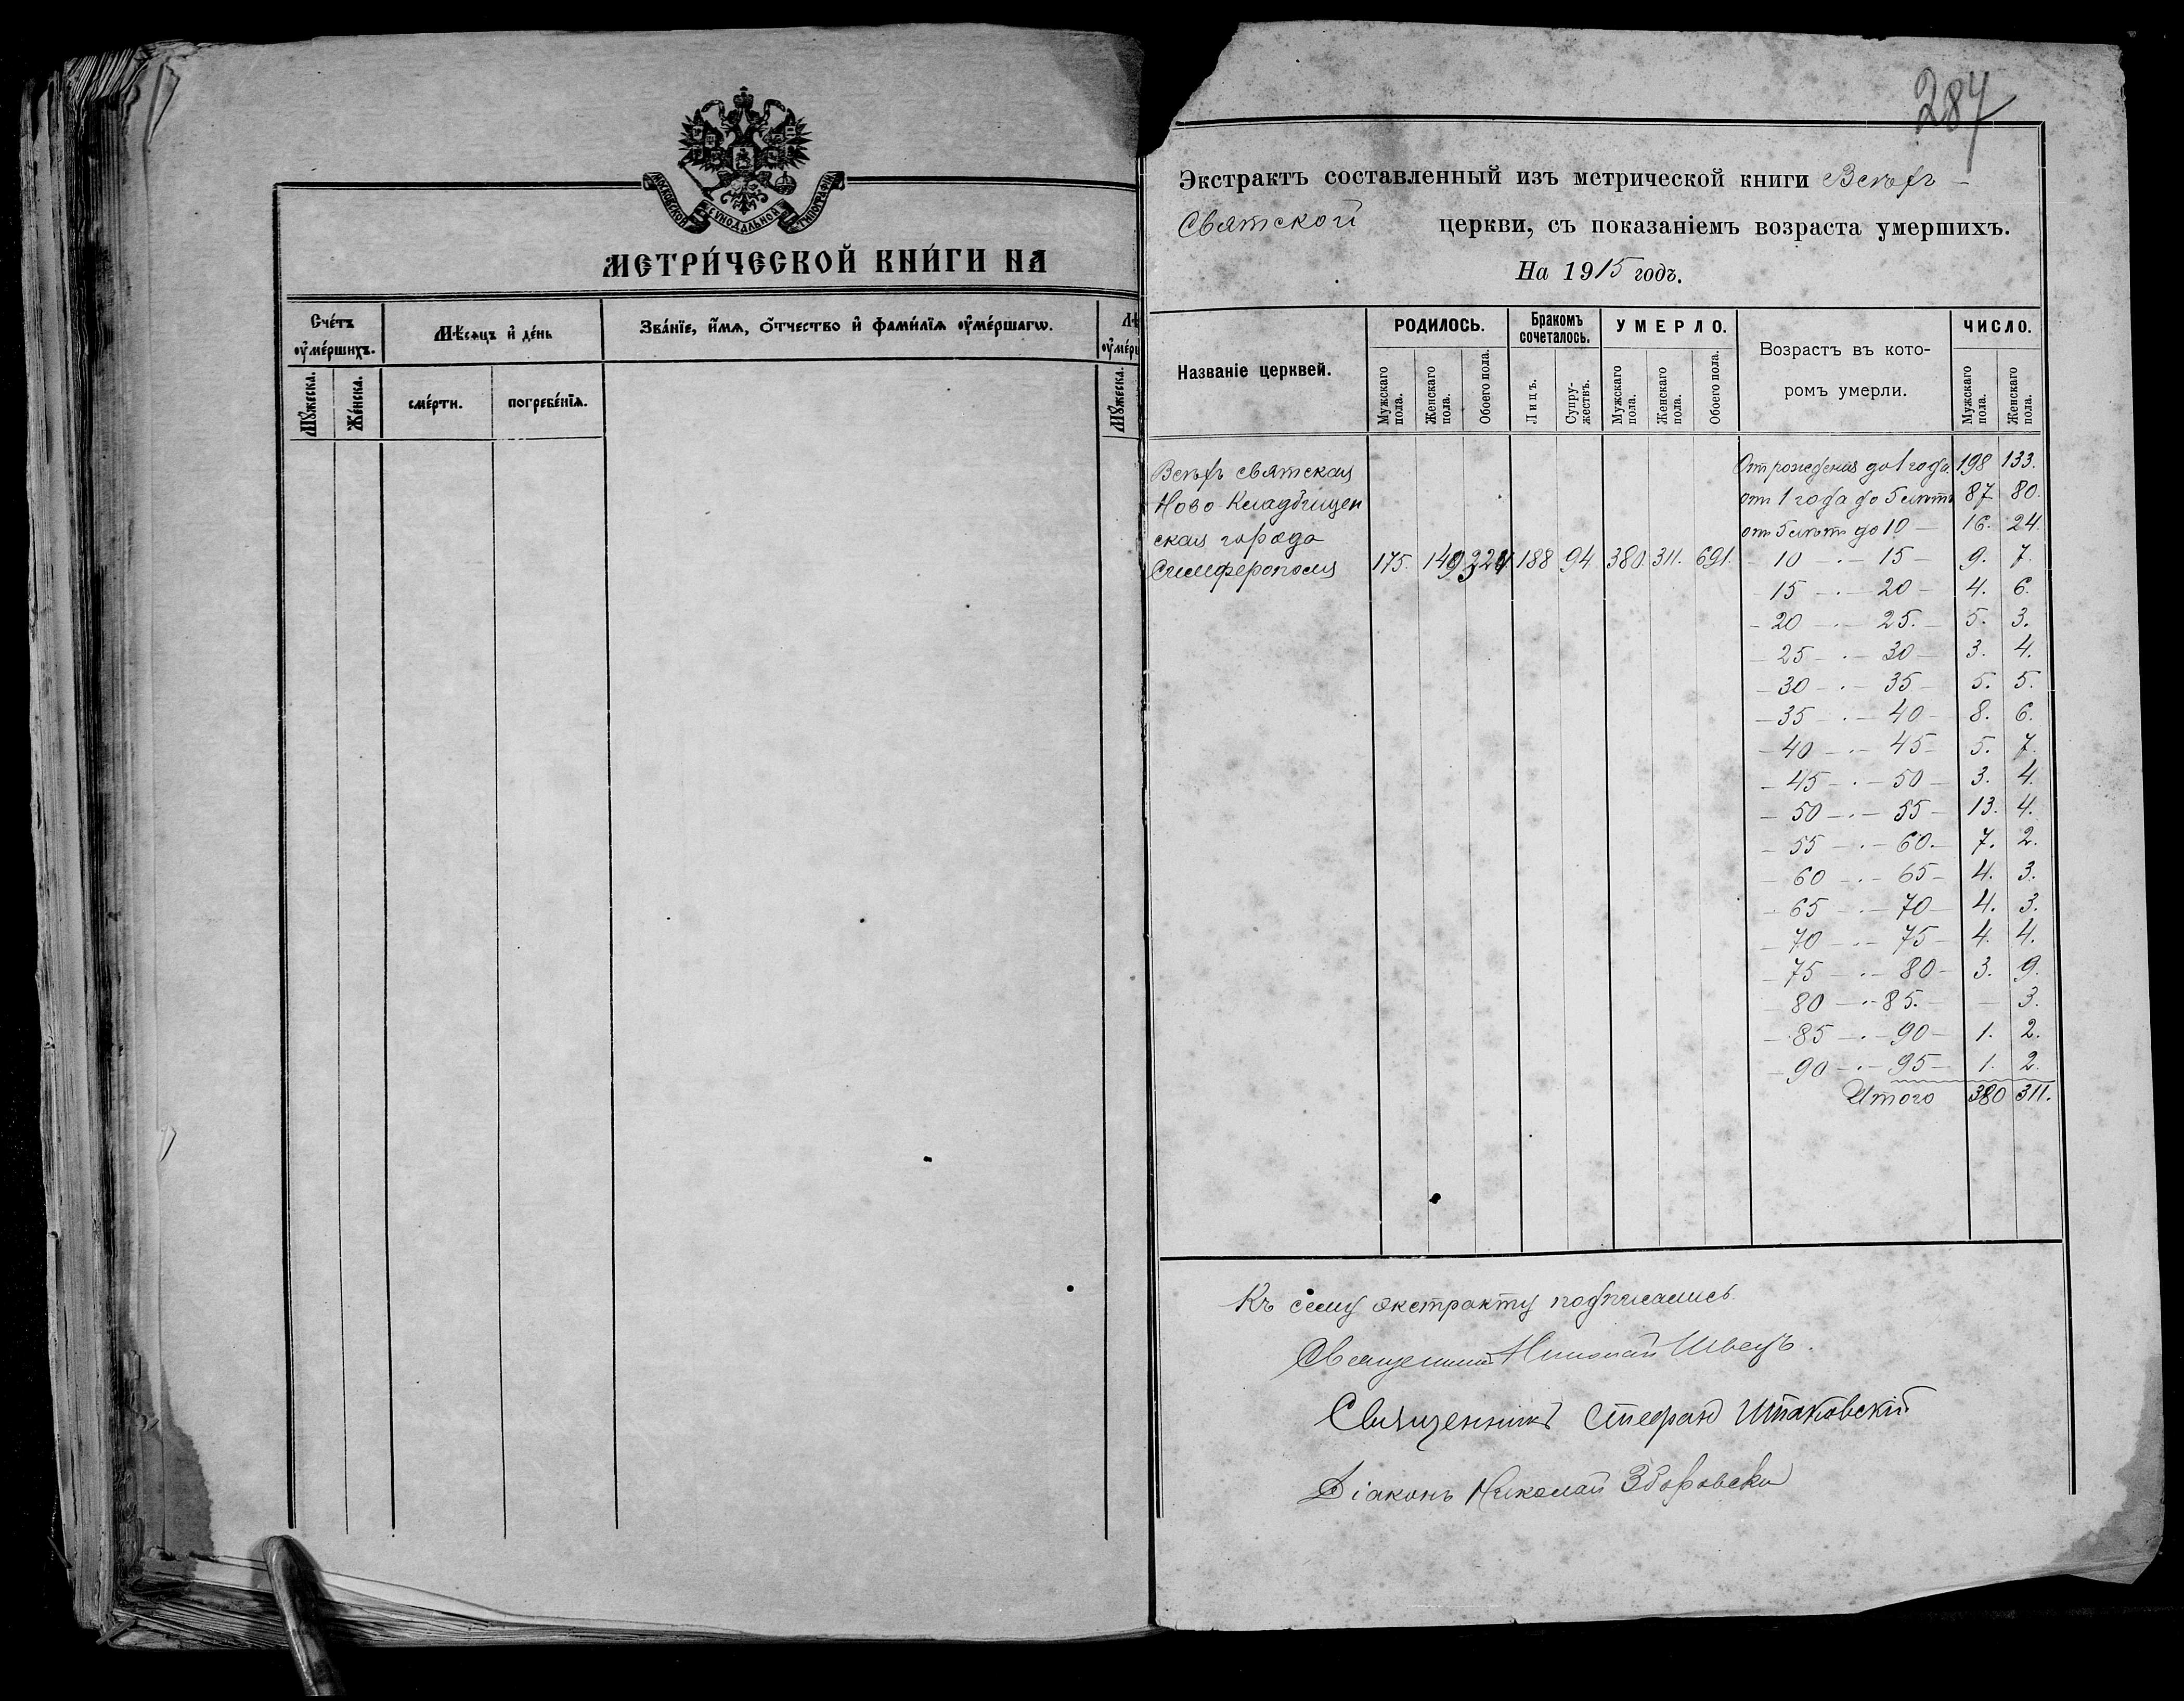 МОСКОВСКОЙ СѴНОДАЛЬНОЙ ТИПОГРАФІИ
МЕТРИ́ЧЕСКОЙ КНИ́ГИ НА
Счéтъ ᲂу҆мéршихъ.
Мѣсѧцъ и҆ дéнь
Звáнїе, и҆́мѧ, ѻ҆́тчество и҆ фами́лїѧ ᲂу҆мéршагѡ.
Мꙋ́жеска.
Жéнска.
смéрти.
погребéнїѧ.
Мꙋ́жеска.
284
Экстрактъ составленный изъ метрической книги Всѣхъ-
Святской церкви, съ показаніемъ возраста умершихъ.
На 1915 годъ.
Названіе церквей.
РОДИЛОСЬ.
Бракомъ сочеталось.
УМЕРЛО.
Возрастъ въ кото-
ромъ умерли.
ЧИСЛО.
Мужскаго пола.
Женскаго пола.
Обоего пола.
Лицъ.
Супру-жествъ.
Мужскаго пола.
Женскаго пола.
Обоего пола.
Мужскаго пола.
Женскаго пола.
Всѣхъ святская
Ново Кладбищен
ская города
Симферополя 175. 149 324 188 94 380. 311. 691.
От рожденія до 1 года 198 133.
от 1 года до 5 лѣтъ 87 80.
от 5 лѣтъ до 10 — 16. 24
— 10 — · — 15 — 9. 7.
15 — · — 20 — 4. 6.
— 20 — · — 25. — 5. 3.
— 25 — · — 30 — 3. 4.
— 30 — · — 35 — 5. 5.
— 35 — · — 40 — 8. 6.
— 40 — · — 45 — 5. 7.
— 45 — · — 50 — 3. 4.
— 50 — · — 55 — 13. 4.
— 55 — · — 60. — 7. 2.
— 60 — · — 65 — 4. 3.
— 65 — · — 70 — 4. 3.
— 70 — · — 75 — 4. 4.
— 75 — · — 80 — 3. 9.
80 — · — 85. — — 3.
— 85 — · — 90 — 1. 2.
— 90 — · — 95 — 1. 2.
Итого 380 311.
Къ сему экстракту подписались
Священникъ Николай Швецъ.
Священникъ Стефан Шпаковскій
Діаконъ Николай Здоровски